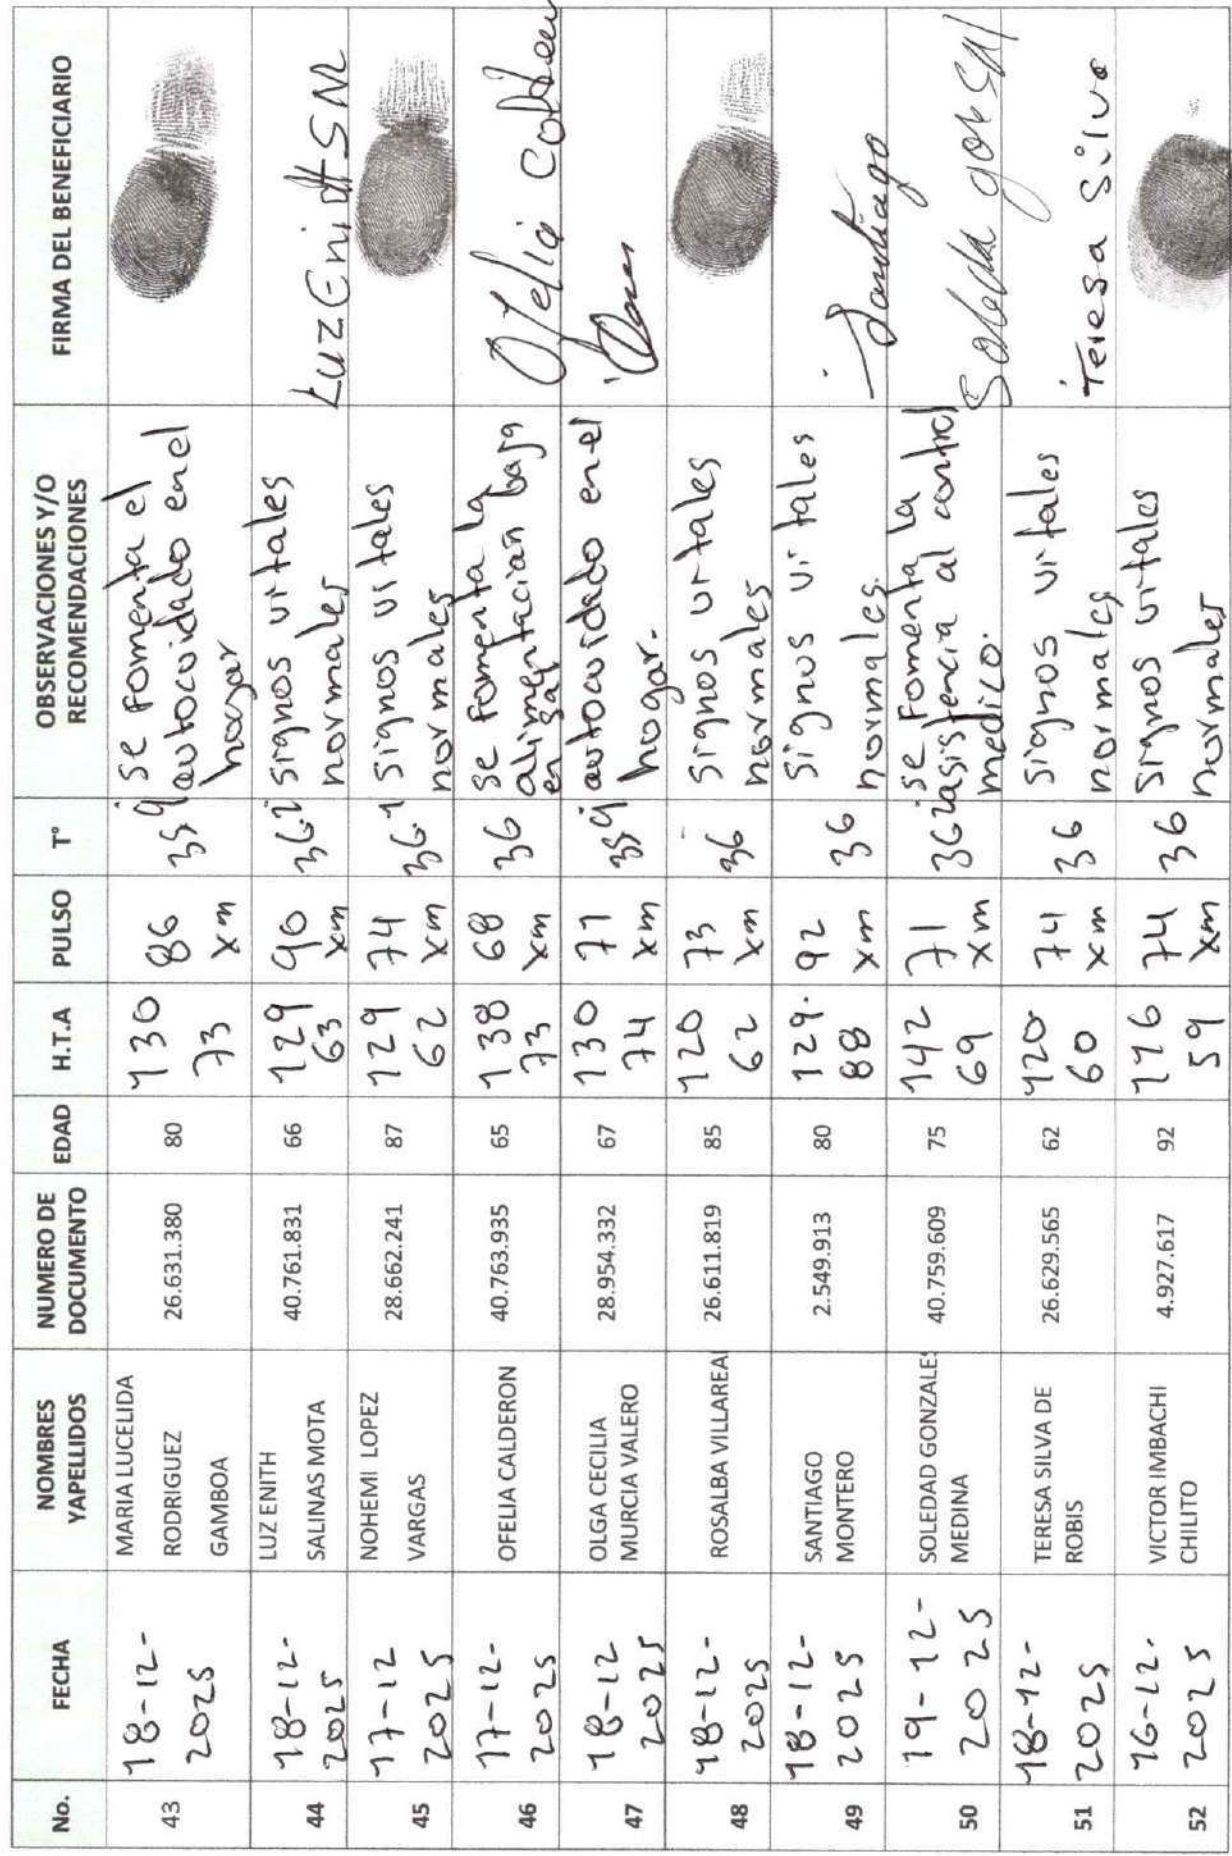 No.
FECHA
NOMBRES
YAPELLIDOS
NUMERO DE
DOCUMENTO
EDAD
H.T.A
PULSO
T°
OBSERVACIONES Y/O
RECOMENDACIONES
FIRMA DEL BENEFICIARIO
43
18-12-
2025
MARIA LUCELIDA
RODRIGUEZ
GAMBOA
26.631.380
80
130
73
86
xm
35,9
se fomenta el
autocuidado en el
hogar
44
18-12-
2025
LUZ ENITH
SALINAS MOTA
40.761.831
66
129
63
90
xm
36.2
signos vitales
normales
Luz Enidt SM
45
17-12
2025
NOHEMI LOPEZ
VARGAS
28.662.241
87
129
62
74
xm
36.1
signos vitales
normales
46
17-12-
2025
OFELIA CALDERON
40.763.935
65
138
73
68
xm
36
se fomenta la
alimentacian baja
en sal
Ofelia
47
18-12
2025
OLGA CECILIA
MURCIA VALERO
28.954.332
67
130
74
71
xm
35,9
autocuidado en el
hogar.
48
18-12-
2025
ROSALBA VILLAREA
26.611.819
85
120
62
73
xm
36
signos vitales
normales
49
18-12-
2025
SANTIAGO
MONTERO
2.549.913
80
129.
88
92
xm
36
signos vitales
normales.
Santiago
50
19-12-
2025
SOLEDAD GONZALES
MEDINA
40.759.609
75
142
69
71
xm
36.2
se fomenta la
asistencia al control
medico.
51
18-12-
2025
TERESA SILVA DE
ROBIS
26.629.565
62
120
60
74
xm
36
signos vitales
normales
Teresa Silva
52
16-12.
2025
VICTOR IMBACHI
CHILITO
4.927.617
92
116
59
74
xm
36
signos vitales
normales